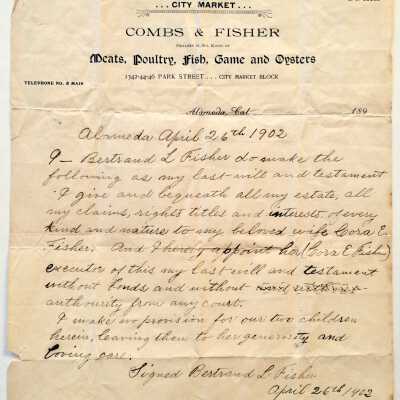 ... CITY MARKET ...
COMBS & FISHER
DEALERS IN ALL KINDS OF
Meats, Poultry, Fish, Game and Oysters
1342-44-46 PARK STREET ... CITY MARKET BLOCK
TELEPHONE NO. 8 MAIN
Alameda, Cal 189
Alameda April 26th 1902
I - Bertrand L Fisher do make the
following as my last will and testament
I give and bequeath all my estate, all
my claims, rights titles and interests of every
kind and nature to my beloved wife Cora E
Fisher. And I hereby appoint her (Cora E Fisher)
executor of this my last will and testament
without bonds and without
authourity from any court.
I make no provision for our two children
herein, leaving them to her generosity and
loving care.
Signed Bertrand L. Fisher
April 26th 1902